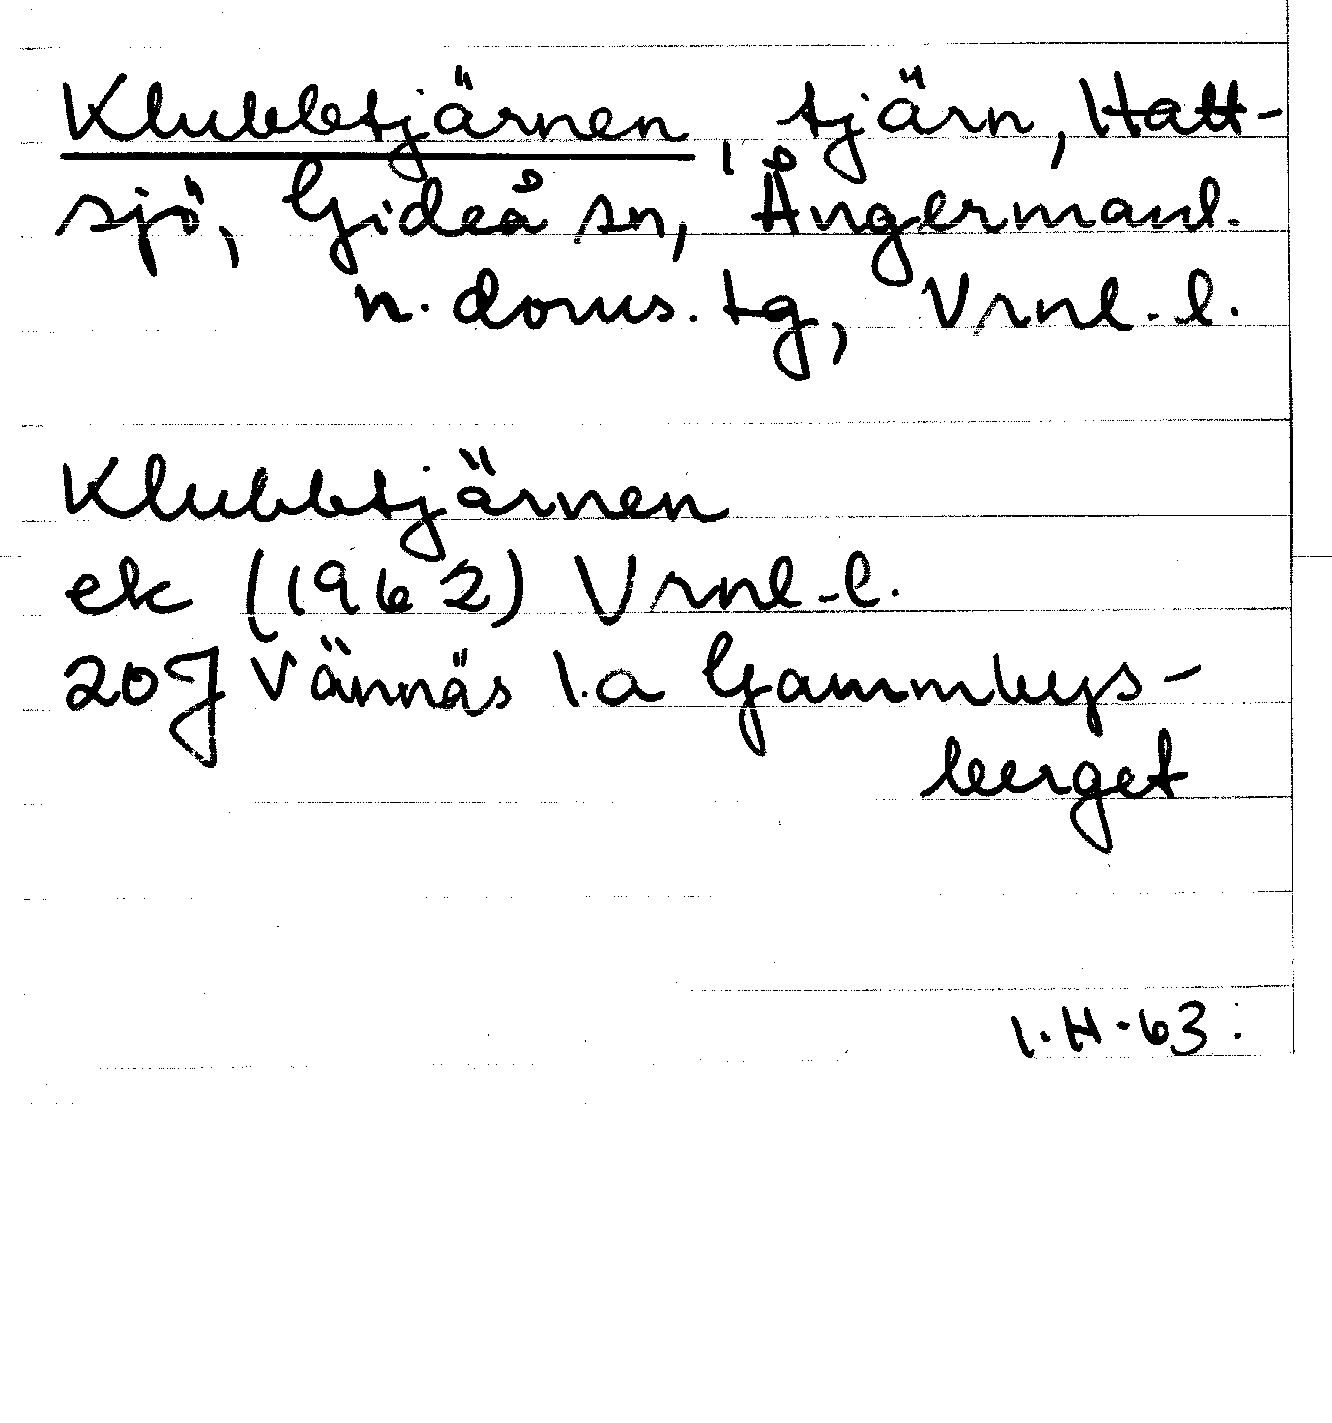 Klubbtjärnen, tjärn, Hatt-
sjö, Gideå sn, Ångermanl.
n. doms. tg, Vrnl. l.
Klubbtjärnen
ek (1962) Vrnl-l.
20J Vännäs 1.a Gammbys-
berget
I.H.63.